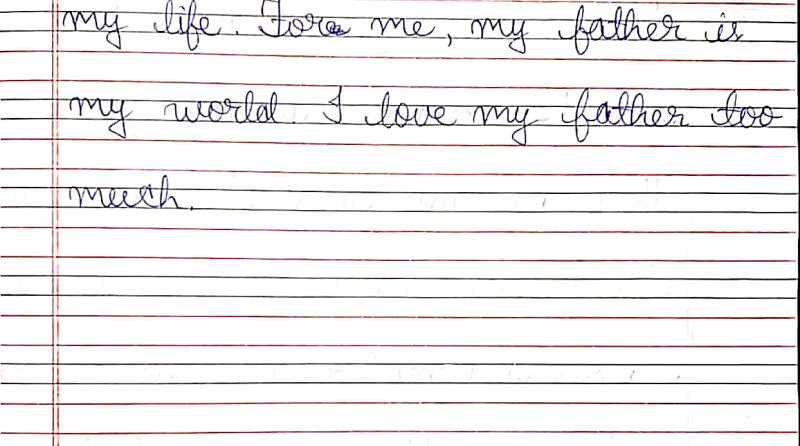 my life. For me, my father is
my world. I love my father too
much.